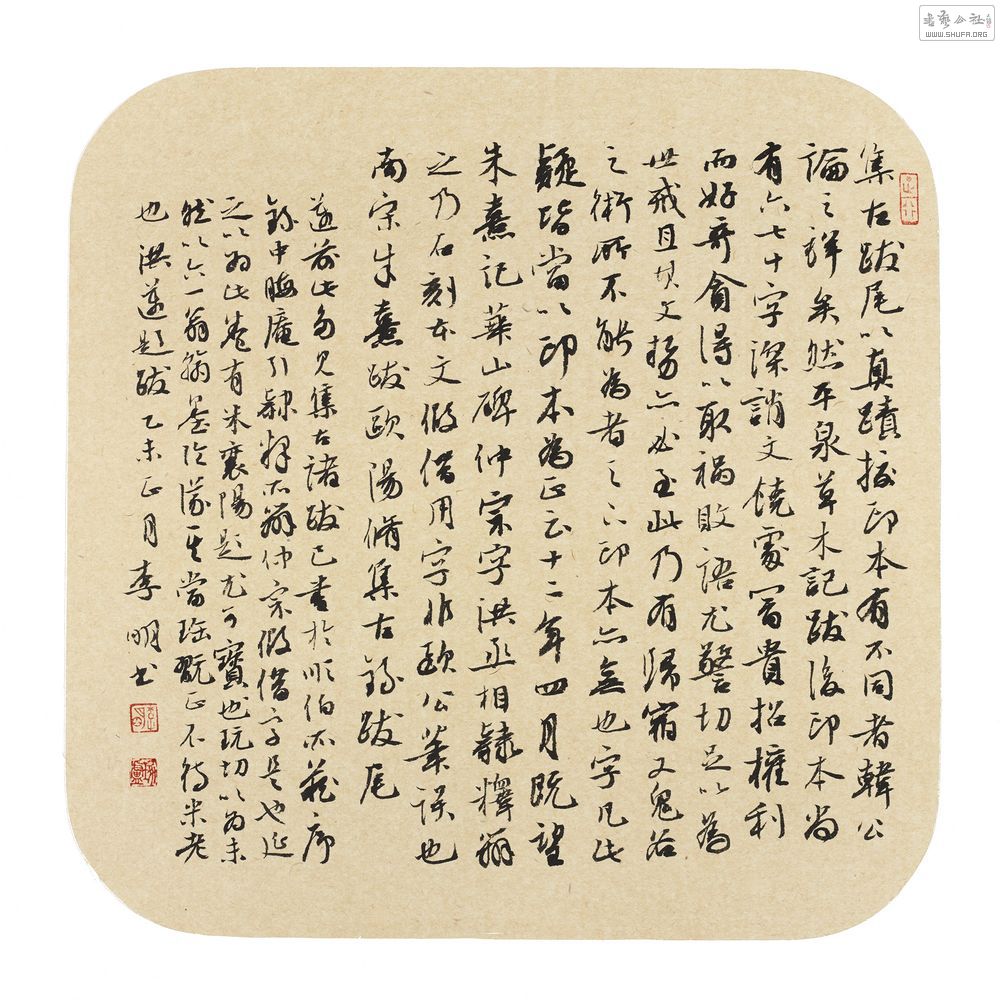 集古跋尾以真蹟校印本有不同者韓公
論之詳矣然平泉草木記跋後印本尚
有六七十字深誚文饒處富貴招權利
而好奇貪得以取禍敗語尤警切足以為
世戒且其文勢亦必至此乃有歸宿又鬼谷
之術所不能為者之下印本亦無也字凡此
疑皆當以印本為正云十二年四月既望
朱熹記華山碑仲宗字洪丞相隸釋辨
之乃石刻本文假借用字非歐公筆誤也
南宋朱熹跋歐陽脩集古錄跋尾
邁前此勾見集古諸跋已書於順伯所藏序
錄中晦庵引隸釋所辨仲宗假借字是也延
之以為此卷有米襄陽題尤可寶也玩切以為未
然以六一翁翰墨所當珍翫正不待米老
也洪邁題跋乙未正月李明書
書藝公社
WWW.SHUFA.ORG